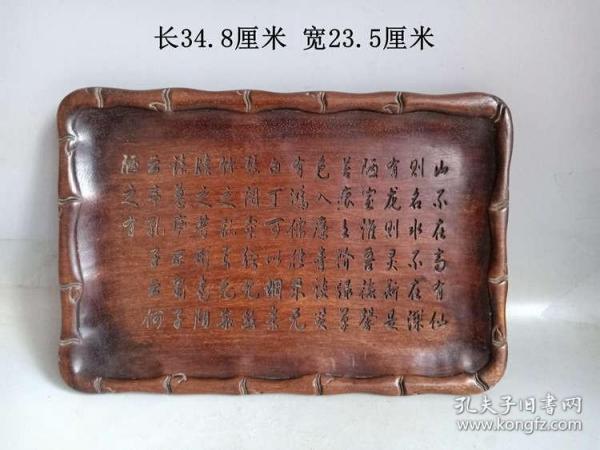 长34.8厘米 宽23.5厘米
山不在高有仙
则名水不在深
有龙则灵斯是
陋室惟吾德馨
苔痕上阶绿草
色入廉青谈笑
有鸿儒往来无
白丁可以调素
琴阅金经无丝
竹之乱耳无案
牍之劳形南阳
诸葛庐西蜀子
云亭孔子云何
陋之有
孔夫子旧书网
www.kongfz.com